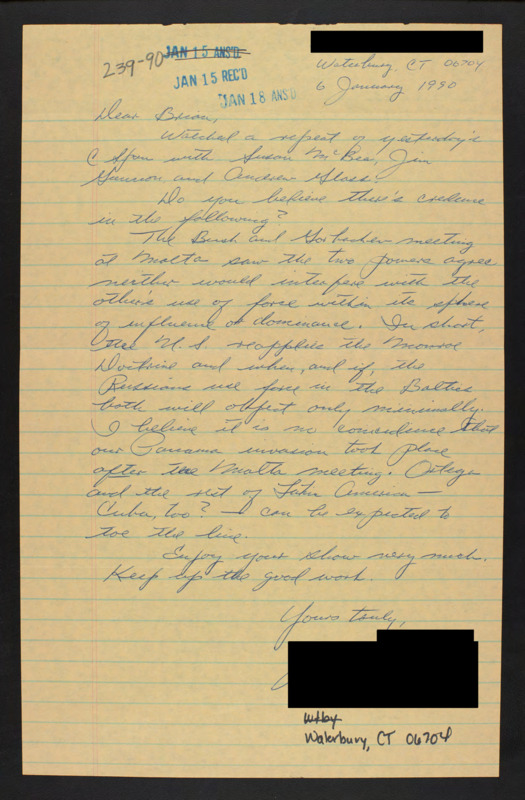 239-90
JAN 15 ANS'D
JAN 15 REC'D
JAN 18 ANS'D
Waterbury, CT 06704
6 January 1990
Dear Brian,
Watched a repeat of yesterday's
C Span with Susan McBee, Jim
and Andrew Glass.
Do you believe there's credence
in the following?
The Bush and Gorbachev meeting
at Malta saw the two powers agree
neither would interfere with the
other's use of force within its sphere
of influence or dominance. In short,
the U.S. reapplies the Monroe
Doctrine and when, and if, the
Russians use force in the Baltics
both will object only minimally.
I believe it is no coincidence that
our Panama invasion took place
after the Malta meeting. Ortega
and the rest of Latin America —
Cuba, too? — can be expected to
toe the line.
Enjoy your show very much.
Keep up the good work.
Yours truly,
Waterbury, CT 06704